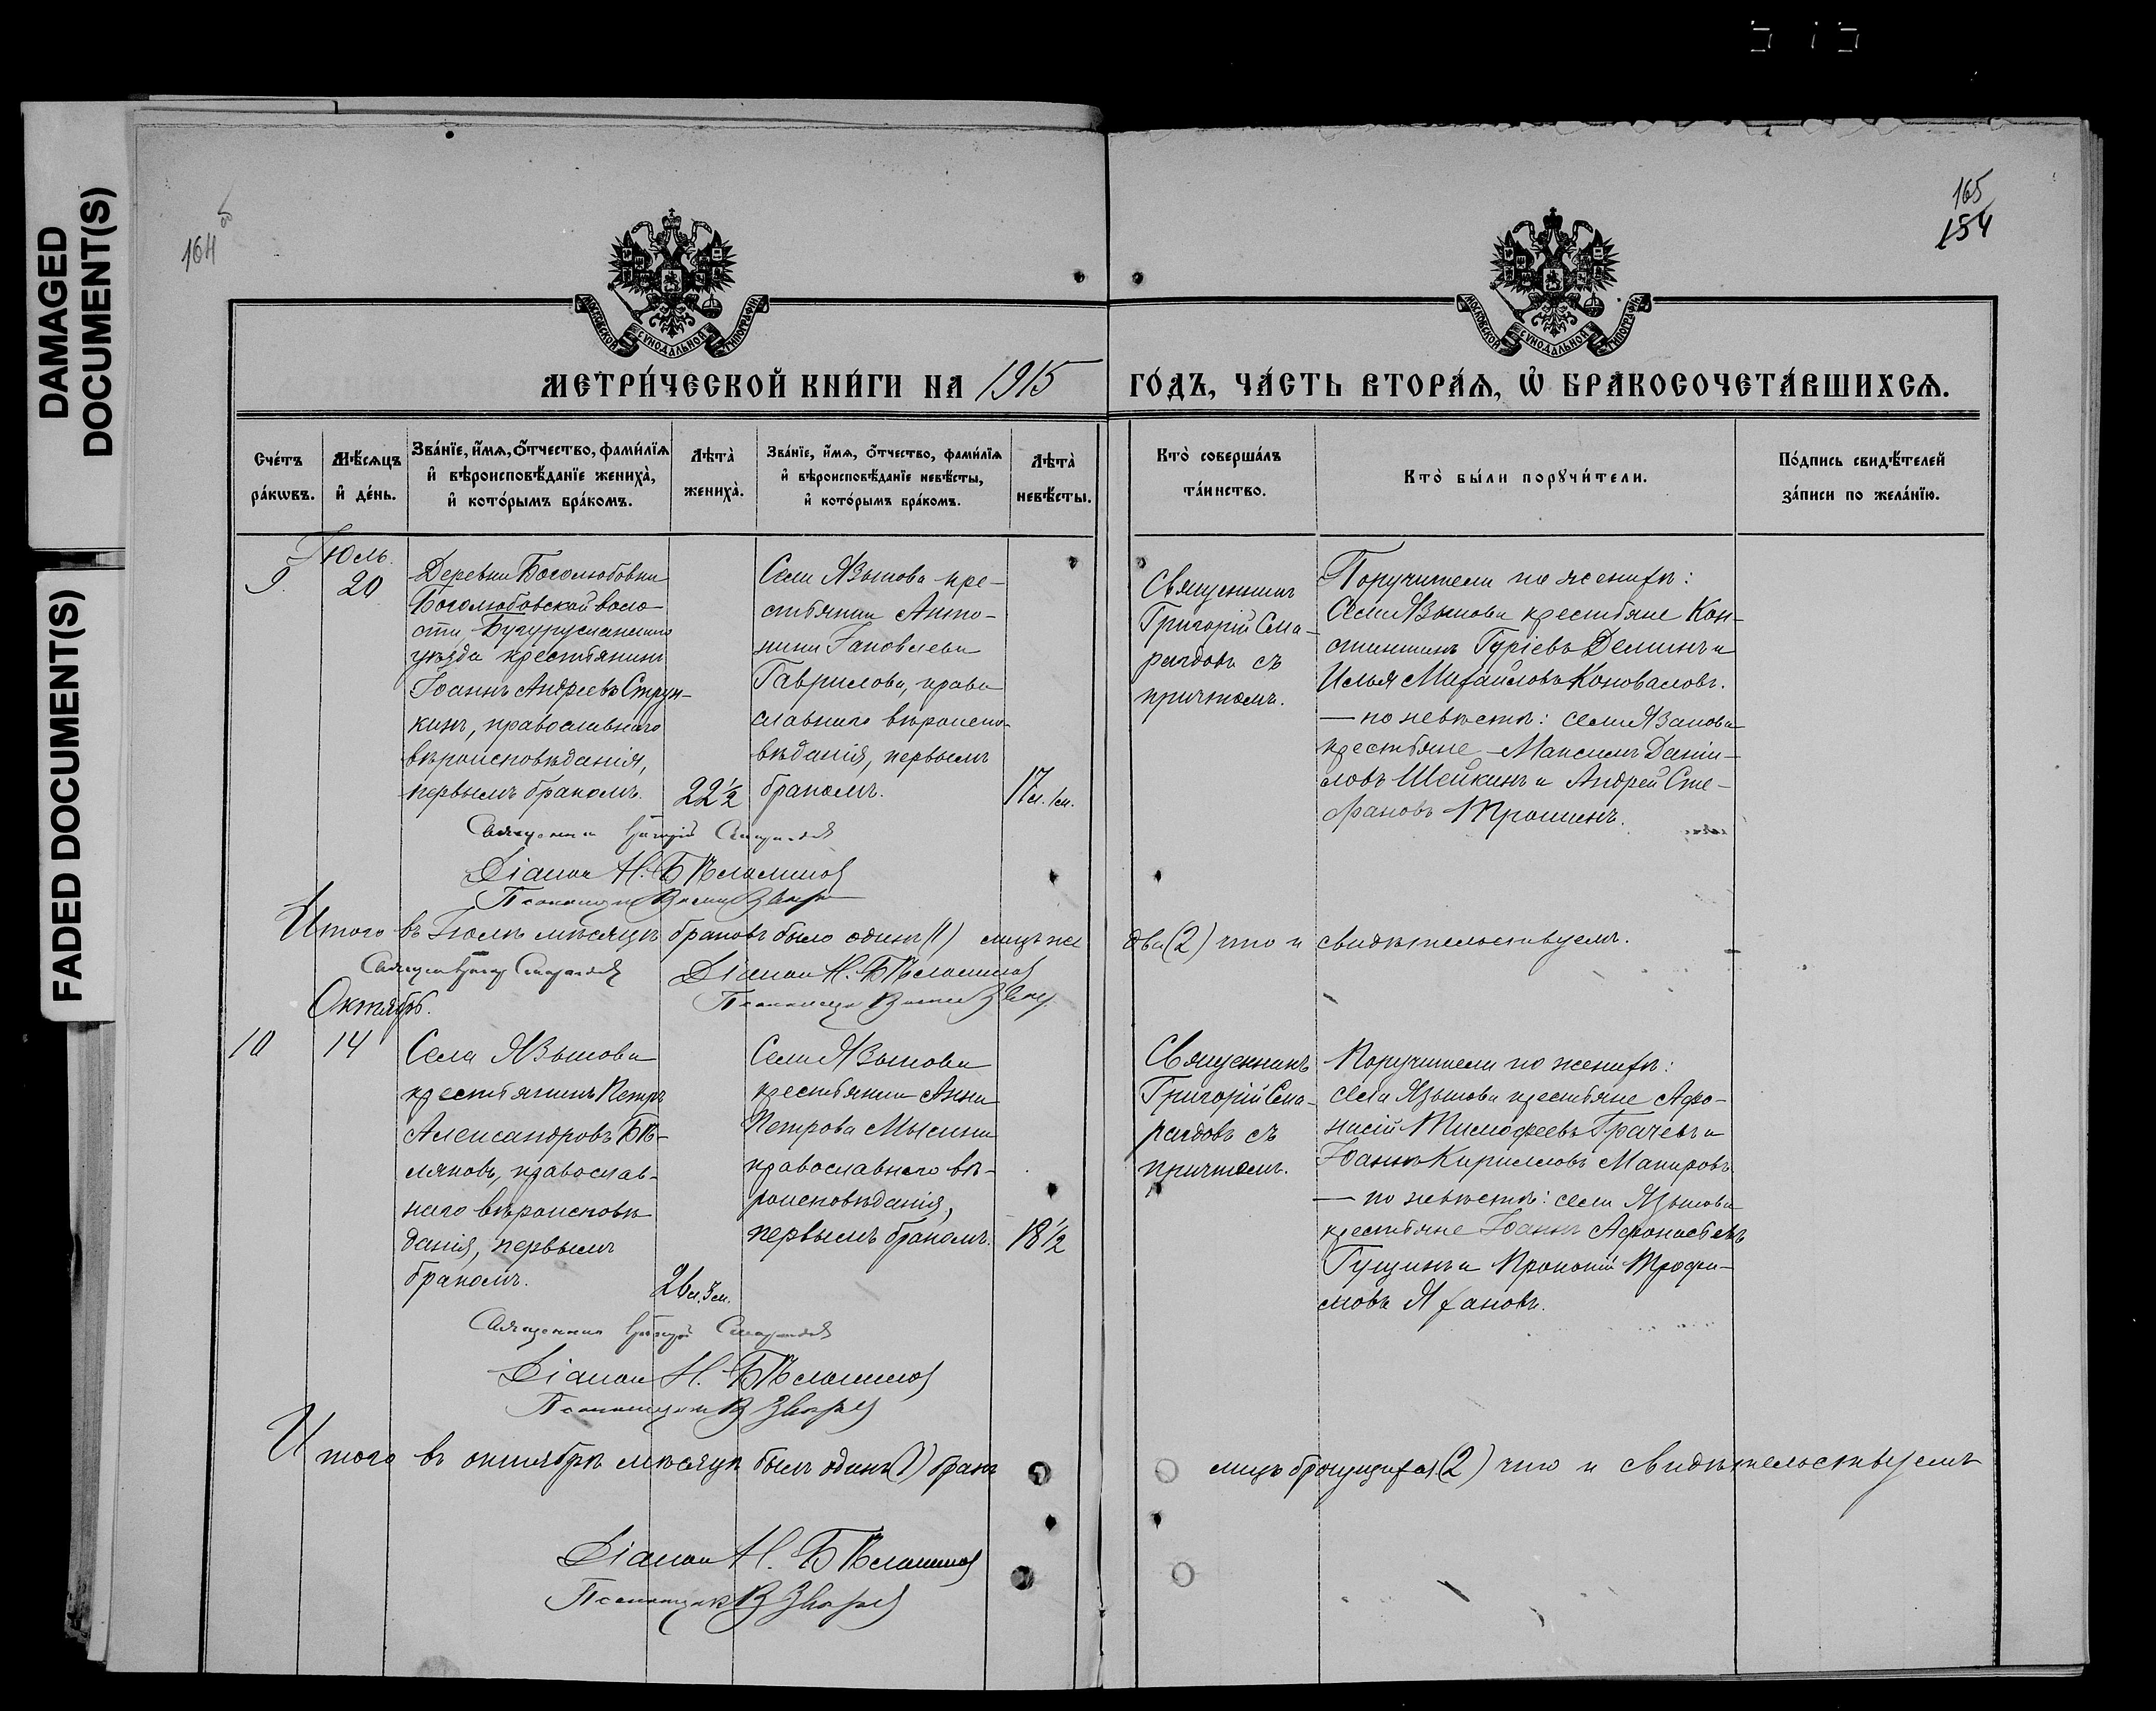 DAMAGED
DOCUMENT(S)
FADED DOCUMENT(S)
164 об
165
154
МОСКОВСКОЙ СѴНОДАЛЬНОЙ ТИПОГРАФІИ
МОСКОВСКОЙ СѴНОДАЛЬНОЙ ТИПОГРАФІИ
МЕТРИ́ЧЕСКОЙ КНИ́ГИ НА 1915
ГО́ДЪ, ЧА́СТЬ ВТОРА́Ѧ, Ѡ҆ БРАКОСОЧЕТА́ВШИХСѦ.
Сче́тъ
ра́кѡвъ.
Мѣ́сѧцъ
и҆ де́нь.
Зва́нїе, и҆́мѧ, ѻ҆́тчество, фами́лїѧ
и҆ вѣроисповѣ́данїе жениха̀,
и҆ кото́рымъ бра́комъ.
Лѣта̀
жениха̀.
Зва́нїе, и҆́мѧ, ѻ҆́тчество, фами́лїѧ
и҆ вѣроисповѣ́данїе невѣ́сты,
и҆ кото́рымъ бра́комъ.
Лѣта̀
невѣ́сты.
Кто̀ соверша́лъ
та́инство.
Кто̀ бы́ли порꙋчи́тели.
По́дпись свидѣ́телей
за́писи по жела́нїю.
Іюль.
9.
20
Деревни Боголюбовки
Боголюбовской воло-
сти, Бугурусланскаго
уѣзда крестьянинъ
Іоаннъ Андреевъ Струн-
кинъ, православнаго
вѣроисповѣданія,
первымъ бракомъ.
22½
Села Языкова кре-
стьянка Анто-
нина Іаковлева
Гаврилова, право
славнаго вѣроиспо-
вѣданія, первымъ
бракомъ.
17 л. 1 м.
Священникъ
Григорій Сма-
рагдовъ съ
причтомъ.
Поручители по женихѣ:
Села Языкова крестьяне Кон-
стантинъ Гуріевъ Деминъ и
Илья Михаиловъ Коноваловъ.
— по невѣстѣ: села Языкова
крестьяне Максимъ Даніи-
ловъ Шейкинъ и Андрей Сте-
фановъ Трошинъ.
Священникъ Григорій Смарагдовъ
Діаконъ Н.
Псаломщикъ
Итого въ Іюлѣ мѣсяцѣ браковъ было одинъ (1) лицъ же
два (2) что и свидѣтельствуемъ.
Священникъ Григор Смарагдовъ
Діаконъ Н.
Псаломщикъ
Октябрь.
10
14
Села Языкова
крестьянинъ Петръ
Александровъ Бѣ-
ляковъ, православ-
наго вѣроисповѣ
данія, первымъ
бракомъ.
26 л. 3 м.
Села Языкова
крестьянка Анна
Петрова Мысина
православнаго вѣ-
роисповѣданія,
первымъ бракомъ.
18½
Священникъ
Григорій Сма-
рагдовъ съ
причтомъ.
Поручители по женихѣ:
села Языкова крестьяне Афо-
насій Тимофеевъ Грачевъ и
Іоаннъ Кирилловъ Макировъ.
— по невѣстѣ: села Языкова
крестьяне Іоаннъ Афонасьевъ
Гущинъ и Прокопій Трофи-
мовъ
Священникъ Григорій Смарагдовъ
Діаконъ Н.
Псаломщикъ В
Итого въ октябрѣ мѣсяцѣ былъ одинъ (1) бракъ
лицъ брачущихся (2) что и свидѣтельствуемъ
Діаконъ Н.
Псаломщикъ В